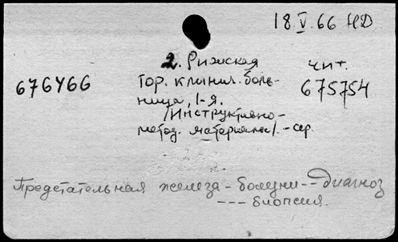 18.V.66 НД
2. Рижская чит.
676466 гор. клинич. боль- 675754
ница, 1-я.
/Инструктивно-
метод. материалы/.-сер.
Предстательная железа - болезни -- Диагноз
--- биопсия.